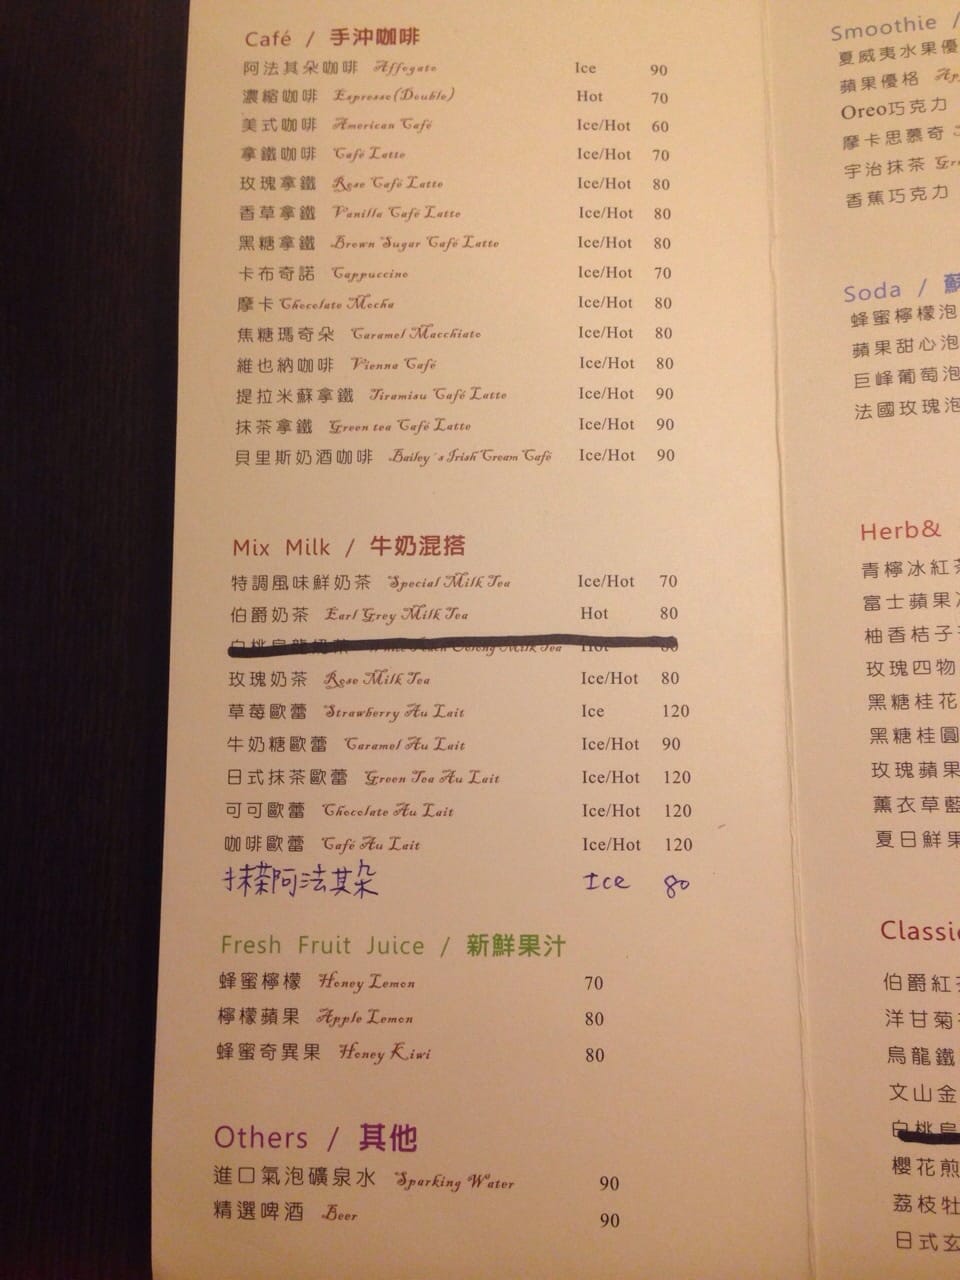 Café / 手沖咖啡
阿法其朵咖啡 Affogato Ice 90
濃縮咖啡 Espresso(Double) Hot 70
美式咖啡 American Café Ice/Hot 60
拿鐵咖啡 Café Latte Ice/Hot 70
玫瑰拿鐵 Rose Café Latte Ice/Hot 80
香草拿鐵 Vanilla Café Latte Ice/Hot 80
黑糖拿鐵 Brown Sugar Café Latte Ice/Hot 80
卡布奇諾 Cappuccino Ice/Hot 70
摩卡 Chocolate Mocha Ice/Hot 80
焦糖瑪奇朵 Caramel Macchiato Ice/Hot 80
維也納咖啡 Vienna Café Ice/Hot 80
提拉米蘇拿鐵 Tiramisu Café Latte Ice/Hot 90
抹茶拿鐵 Green tea Café Latte Ice/Hot 90
貝里斯奶酒咖啡 Bailey's Irish Cream Café Ice/Hot 90
Mix Milk / 牛奶混搭
特調風味鮮奶茶 Special Milk Tea Ice/Hot 70
伯爵奶茶 Earl Grey Milk Tea Hot 80
白桃烏龍奶茶 White Peach Oolong Milk Tea Hot 80
玫瑰奶茶 Rose Milk Tea Ice/Hot 80
草莓歐蕾 Strawberry Au Lait Ice 120
牛奶糖歐蕾 Caramel Au Lait Ice/Hot 90
日式抹茶歐蕾 Green Tea Au Lait Ice/Hot 120
可可歐蕾 Chocolate Au Lait Ice/Hot 120
咖啡歐蕾 Café Au Lait Ice/Hot 120
抹茶阿法其朵 Ice 80
Fresh Fruit Juice / 新鮮果汁
蜂蜜檸檬 Honey Lemon 70
檸檬蘋果 Apple Lemon 80
蜂蜜奇異果 Honey Kiwi 80
Others / 其他
進口氣泡礦泉水 Sparking Water 90
精選啤酒 Beer 90
Smoothie /
夏威夷水果優
蘋果優格
Oreo巧克力
摩卡思慕奇
宇治抹茶
香蕉巧克力
Soda / 蘇
蜂蜜檸檬泡
蘋果甜心泡
巨峰葡萄泡
法國玫瑰泡
Herb&
青檸冰紅茶
富士蘋果
柚香桔子
玫瑰四物
黑糖桂花
黑糖桂圓
玫瑰蘋果
薰衣草藍
夏日鮮果
Classic
伯爵紅茶
洋甘菊
烏龍鐵
文山金
白桃烏
櫻花煎
荔枝牡
日式玄